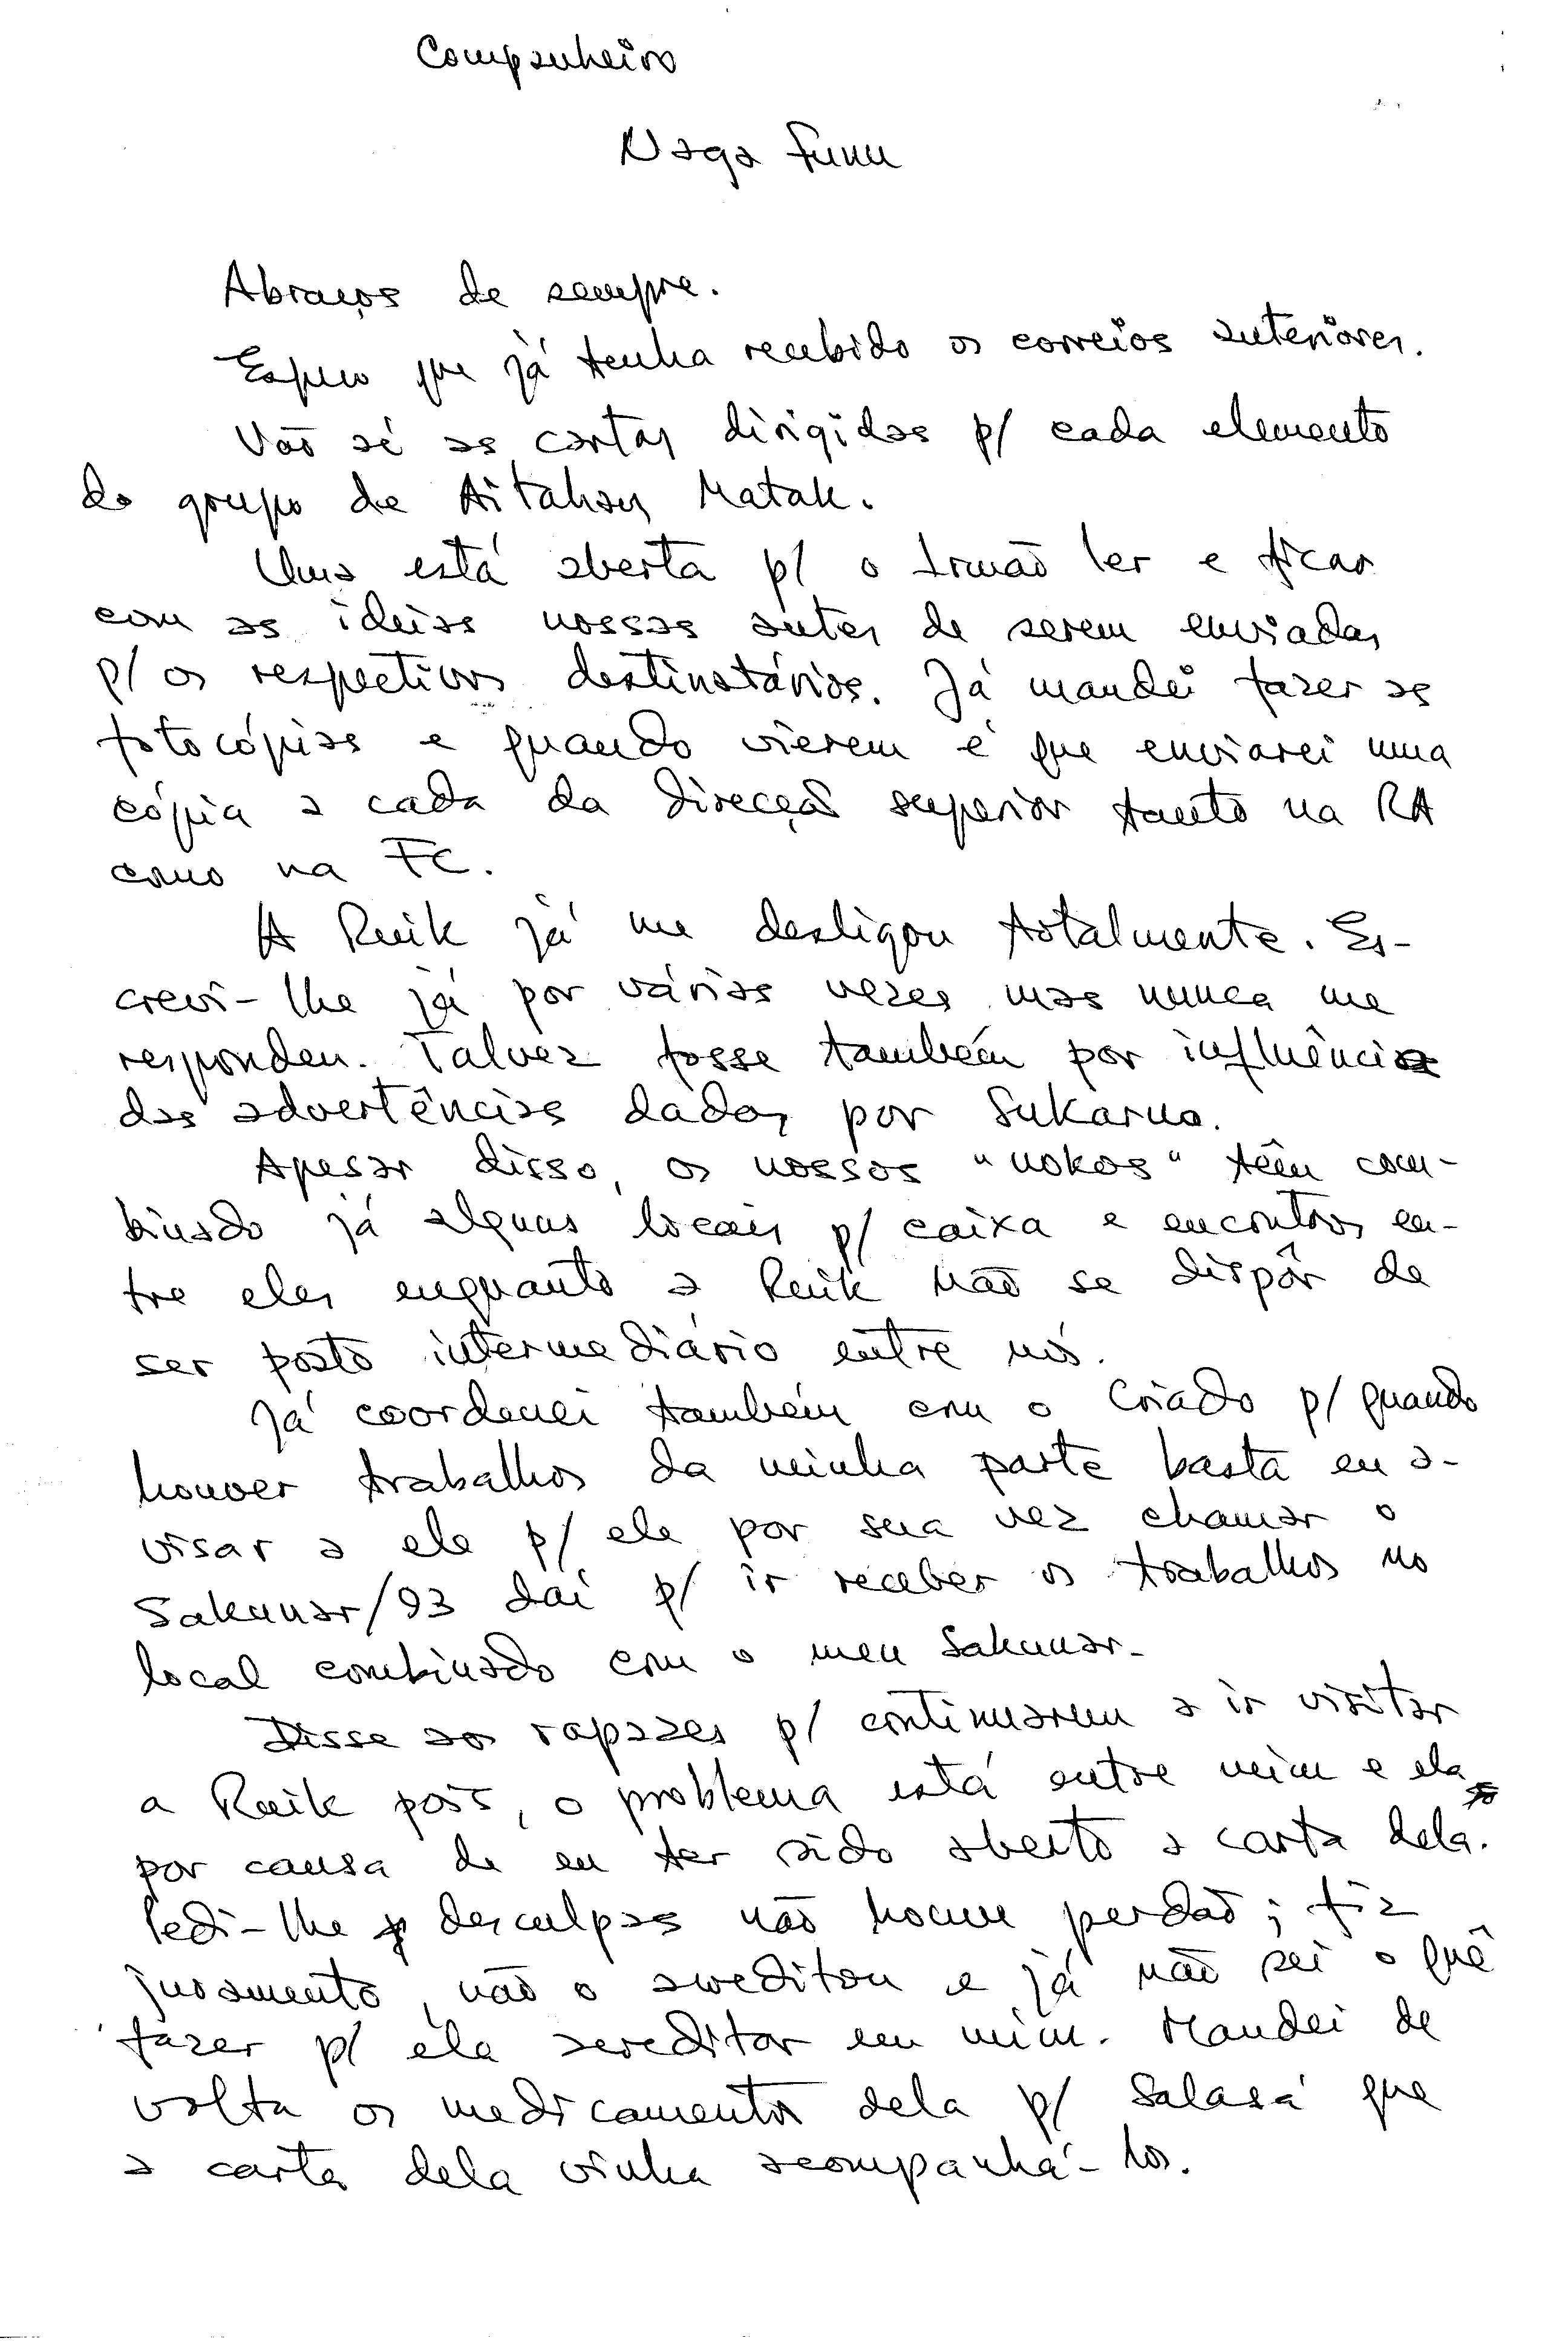 Companheiro
Naga Funu
Abraços de sempre.
Espero que já tenha recebido os correios anteriores.
Vão aí as cartas dirigidas p/ cada elemento
do grupo de Aitahan Matak.
Uma está aberta p/ o Irmão ler e ficar
com as ideias nossas antes de serem enviadas
p/ os respectivos destinatários. Já mandei fazer as
fotocópias e quando vierem é que enviarei uma
cópia a cada da direcção superior tanto na RA
como na FC.
A Ruik já me desligou totalmente. Es-
crevi-lhe já por várias vezes mas nunca me
respondeu. Talvez fosse também por influência
das advertências dadas por Sukarno.
Apesar disso, os nossos "nokos" têm com-
binado já alguns locais p/ caixa e encontros en-
tre eles enquanto a Ruik não se dispôr de
ser posto intermediário entre nós.
Já coordenei também com o Criado p/ quando
houver trabalhos da minha parte basta eu a-
visar a ele p/ ele por sua vez chamar o
Sakunar/93 daí p/ ir receber os trabalhos no
local combinado com o meu Sakunar.
Disse aos rapazes p/ continuarem a ir visitar
a Ruik pois, o problema está entre mim e ela
por causa de eu ter sido aberto a carta dela.
Pedi-lhe desculpas não houve perdão; fiz
juramento, não o acreditou e já não sei o quê
fazer p/ ela acreditar em mim. Mandei de
volta os medicamentos dela p/ Salasá que
a carta dela vinha acompanhá-los.